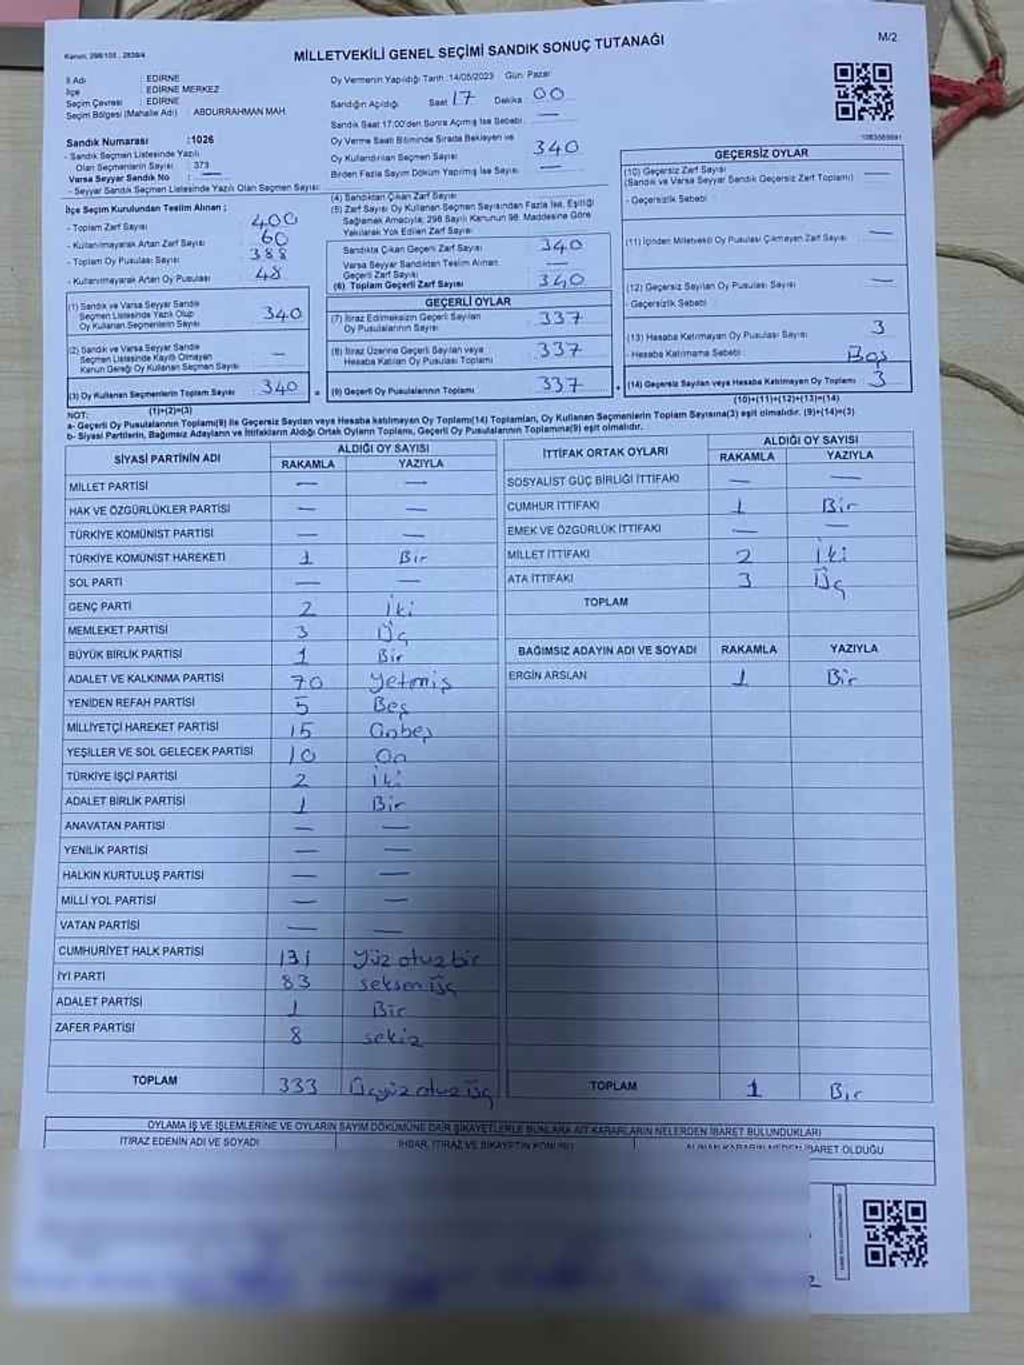 Kanun, 298/105 , 2839/4
MİLLETVEKİLİ GENEL SEÇİMİ SANDIK SONUÇ TUTANAĞI
M/2
İl Adı : EDİRNE
İlçe : EDİRNE MERKEZ
Seçim Çevresi : EDİRNE
Seçim Bölgesi (Mahalle Adı) : ABDURRAHMAN MAH.
Sandık Numarası :1026
- Sandık Seçmen Listesinde Yazılı
Olan Seçmenlerin Sayısı : 373
Varsa Seyyar Sandık No : —
- Seyyar Sandık Seçmen Listesinde Yazılı Olan Seçmen Sayısı:
Oy Vermenin Yapıldığı Tarih :14/05/2023 Gün: Pazar
Sandığın Açıldığı Saat 17 Dakika 00
Sandık Saat 17:00'den Sonra Açılmış İse Sebebi: —
Oy Verme Saati Bitiminde Sırada Bekleyen ve
Oy Kullandırılan Seçmen Sayısı 340
Birden Fazla Sayım Döküm Yapılmış İse Sayısı: —
İlçe Seçim Kurulundan Teslim Alınan ;
- Toplam Zarf Sayısı 400
- Kullanılmayarak Artan Zarf Sayısı 60
- Toplam Oy Pusulası Sayısı 388
- Kullanılmayarak Artan Oy Pusulası 48
(1) Sandık ve Varsa Seyyar Sandık
Seçmen Listesinde Yazılı Olup
Oy Kullanan Seçmenlerin Sayısı 340
(2) Sandık ve Varsa Seyyar Sandık
Seçmen Listesinde Kayıtlı Olmayan
Kanun Gereği Oy Kullanan Seçmen Sayısı —
(3) Oy Kullanan Seçmenlerin Toplam Sayısı 340
(1)+(2)=(3)
(4) Sandıktan Çıkan Zarf Sayısı
(5) Zarf Sayısı Oy Kullanan Seçmen Sayısından Fazla İse, Eşitliği
Sağlamak Amacıyla; 298 Sayılı Kanunun 98. Maddesine Göre
Yakılarak Yok Edilen Zarf Sayısı
Sandıkta Çıkan Geçerli Zarf Sayısı 340
Varsa Seyyar Sandıktan Teslim Alınan
Geçerli Zarf Sayısı —
(6) Toplam Geçerli Zarf Sayısı 340
GEÇERLİ OYLAR
(7) İtiraz Edilmeksizin Geçerli Sayılan
Oy Pusulalarının Sayısı 337
(8) İtiraz Üzerine Geçerli Sayılan veya
Hesaba Katılan Oy Pusulası Toplamı 337
(9) Geçerli Oy Pusulalarının Toplamı 337
GEÇERSİZ OYLAR
(10) Geçersiz Zarf Sayısı —
(Sandık ve Varsa Seyyar Sandık Geçersiz Zarf Toplamı)
- Geçersizlik Sebebi:
(11) İçinden Milletvekili Oy Pusulası Çıkmayan Zarf Sayısı —
(12) Geçersiz Sayılan Oy Pusulası Sayısı —
- Geçersizlik Sebebi
(13) Hesaba Katılmayan Oy Pusulası Sayısı 3
Hesaba Katılmama Sebebi : Boş
(14) Geçersiz Sayılan veya Hesaba Katılmayan Oy Toplamı 3
(10)+(11)+(12)+(13)=(14)
NOT:
a- Geçerli Oy Pusulalarının Toplamı(9) ile Geçersiz Sayılan veya Hesaba katılmayan Oy Toplam(14) Toplamları, Oy Kullanan Seçmenlerin Toplam Sayısına(3) eşit olmalıdır. (9)+(14)=(3)
b- Siyasi Partilerin, Bağımsız Adayların ve İttifakların Aldığı Ortak Oyların Toplamı, Geçerli Oy Pusulalarının Toplamına(9) eşit olmalıdır.
SİYASİ PARTİNİN ADI ALDIĞI OY SAYISI
RAKAMLA YAZIYLA
MİLLET PARTİSİ — —
HAK VE ÖZGÜRLÜKLER PARTİSİ — —
TÜRKİYE KOMÜNİST PARTİSİ — —
TÜRKİYE KOMÜNİST HAREKETİ 1 Bir
SOL PARTİ — —
GENÇ PARTİ 2 İki
MEMLEKET PARTİSİ 3 Üç
BÜYÜK BİRLİK PARTİSİ 1 Bir
ADALET VE KALKINMA PARTİSİ 70 Yetmiş
YENİDEN REFAH PARTİSİ 5 Beş
MİLLİYETÇİ HAREKET PARTİSİ 15 Onbeş
YEŞİLLER VE SOL GELECEK PARTİSİ 10 On
TÜRKİYE İŞÇİ PARTİSİ 2 İki
ADALET BİRLİK PARTİSİ 1 Bir
ANAVATAN PARTİSİ — —
YENİLİK PARTİSİ — —
HALKIN KURTULUŞ PARTİSİ — —
MİLLİ YOL PARTİSİ — —
VATAN PARTİSİ — —
CUMHURİYET HALK PARTİSİ 131 Yüz otuz bir
İYİ PARTİ 83 seksen üç
ADALET PARTİSİ 1 Bir
ZAFER PARTİSİ 8 sekiz
TOPLAM 333 Üçyüz otuz üç
İTTİFAK ORTAK OYLARI ALDIĞI OY SAYISI
RAKAMLA YAZIYLA
SOSYALİST GÜÇ BİRLİĞİ İTTİFAKI — —
CUMHUR İTTİFAKI 1 Bir
EMEK VE ÖZGÜRLÜK İTTİFAKI — —
MİLLET İTTİFAKI 2 İki
ATA İTTİFAKI 3 Üç
TOPLAM
BAĞIMSIZ ADAYIN ADI VE SOYADI RAKAMLA YAZIYLA
ERGİN ARSLAN 1 Bir
TOPLAM 1 Bir
OYLAMA İŞ VE İŞLEMLERİNE VE OYLARIN SAYIM DÖKÜMÜNE DAİR ŞİKAYETLERLE BUNLARA AİT KARARLARIN NELERDEN İBARET BULUNDUKLARI
İTİRAZ EDENİN ADI VE SOYADI İHBAR, İTİRAZ VE ŞİKAYETİN KONUSU ALINAN KARARIN NEDEN İBARET OLDUĞU